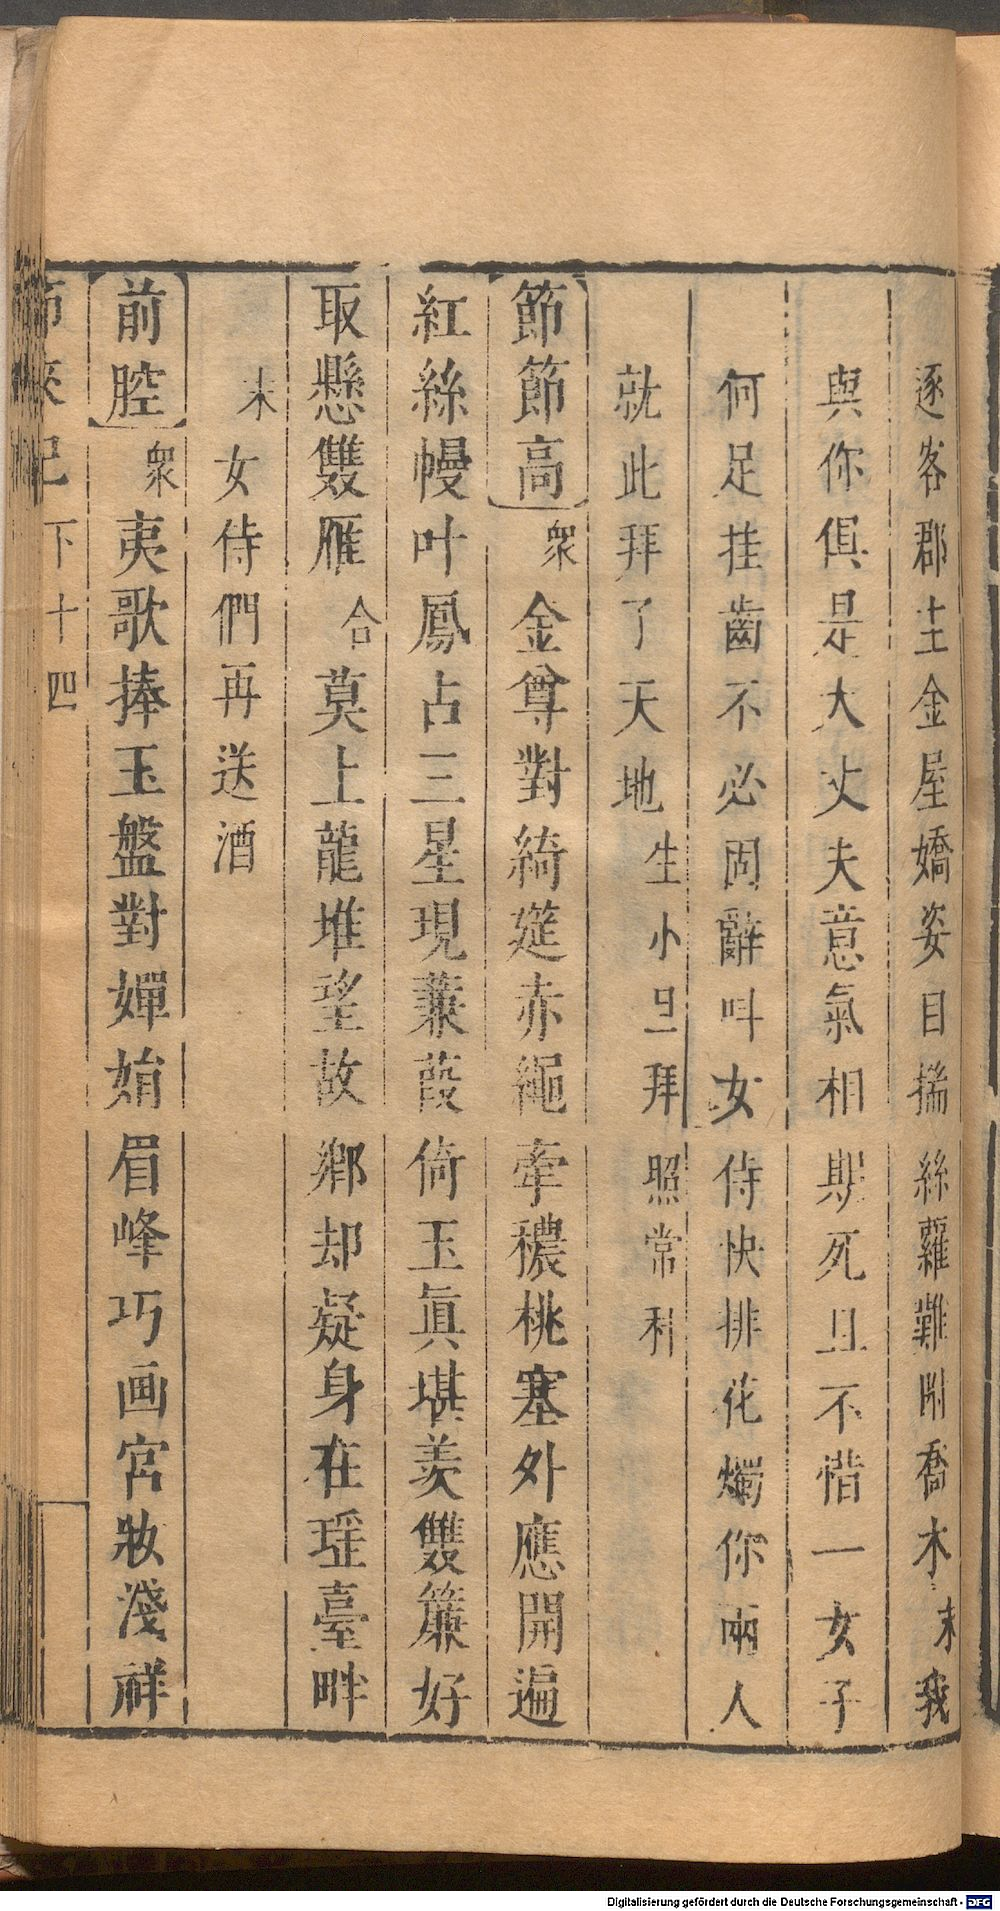 逐客郡土金屋嬌姿目揣絲蘿難附喬木末我
與你俱是大丈夫意氣相期死且不惜一女子
何足挂齒不必固辭叫女侍快排花燭你兩人
就此拜了天地生小旦拜照常科
節節高衆金尊對綺筵赤繩牽穠桃塞外應開遍
紅絲幔叶鳳占三星現蒹葭倚玉眞堪羡雙簾好
取懸雙雁合莫上龍堆望故鄉却疑身在瑶臺畔
末女侍們再送酒
前腔衆夷歌捧玉盤對嬋娟眉峰巧画宮妝淺祥
記下十四
Digitalisierung gefördert durch die Deutsche Forschungsgemeinschaft - DFG